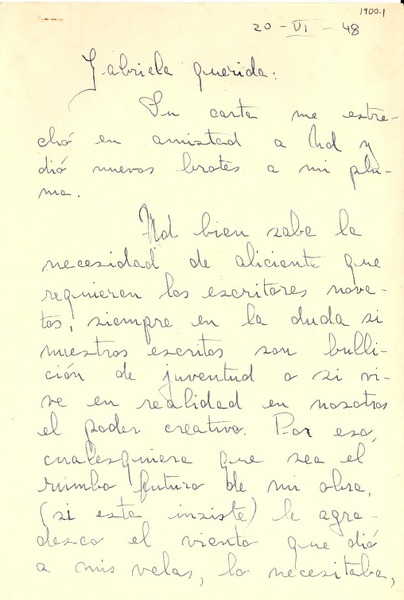 1900.1
20 - VI - 48
Gabriela querida:
Su carta me estre-
chó en amistad a Ud y
dió nuevos brotes a mi plu-
ma.
Ud bien sabe la
necesidad de aliciente que
requieren los escritores nova-
tos, siempre en la duda si
nuestros escritos son bulli-
ción de juventud o si vi-
ve en realidad en nosotros
el poder creativo. Por eso,
cualesquiera que sea el
rumbo futuro de mi obra,
(si esta insiste) le agra-
desco el viento que dió
a mis velas, lo necesitaba,